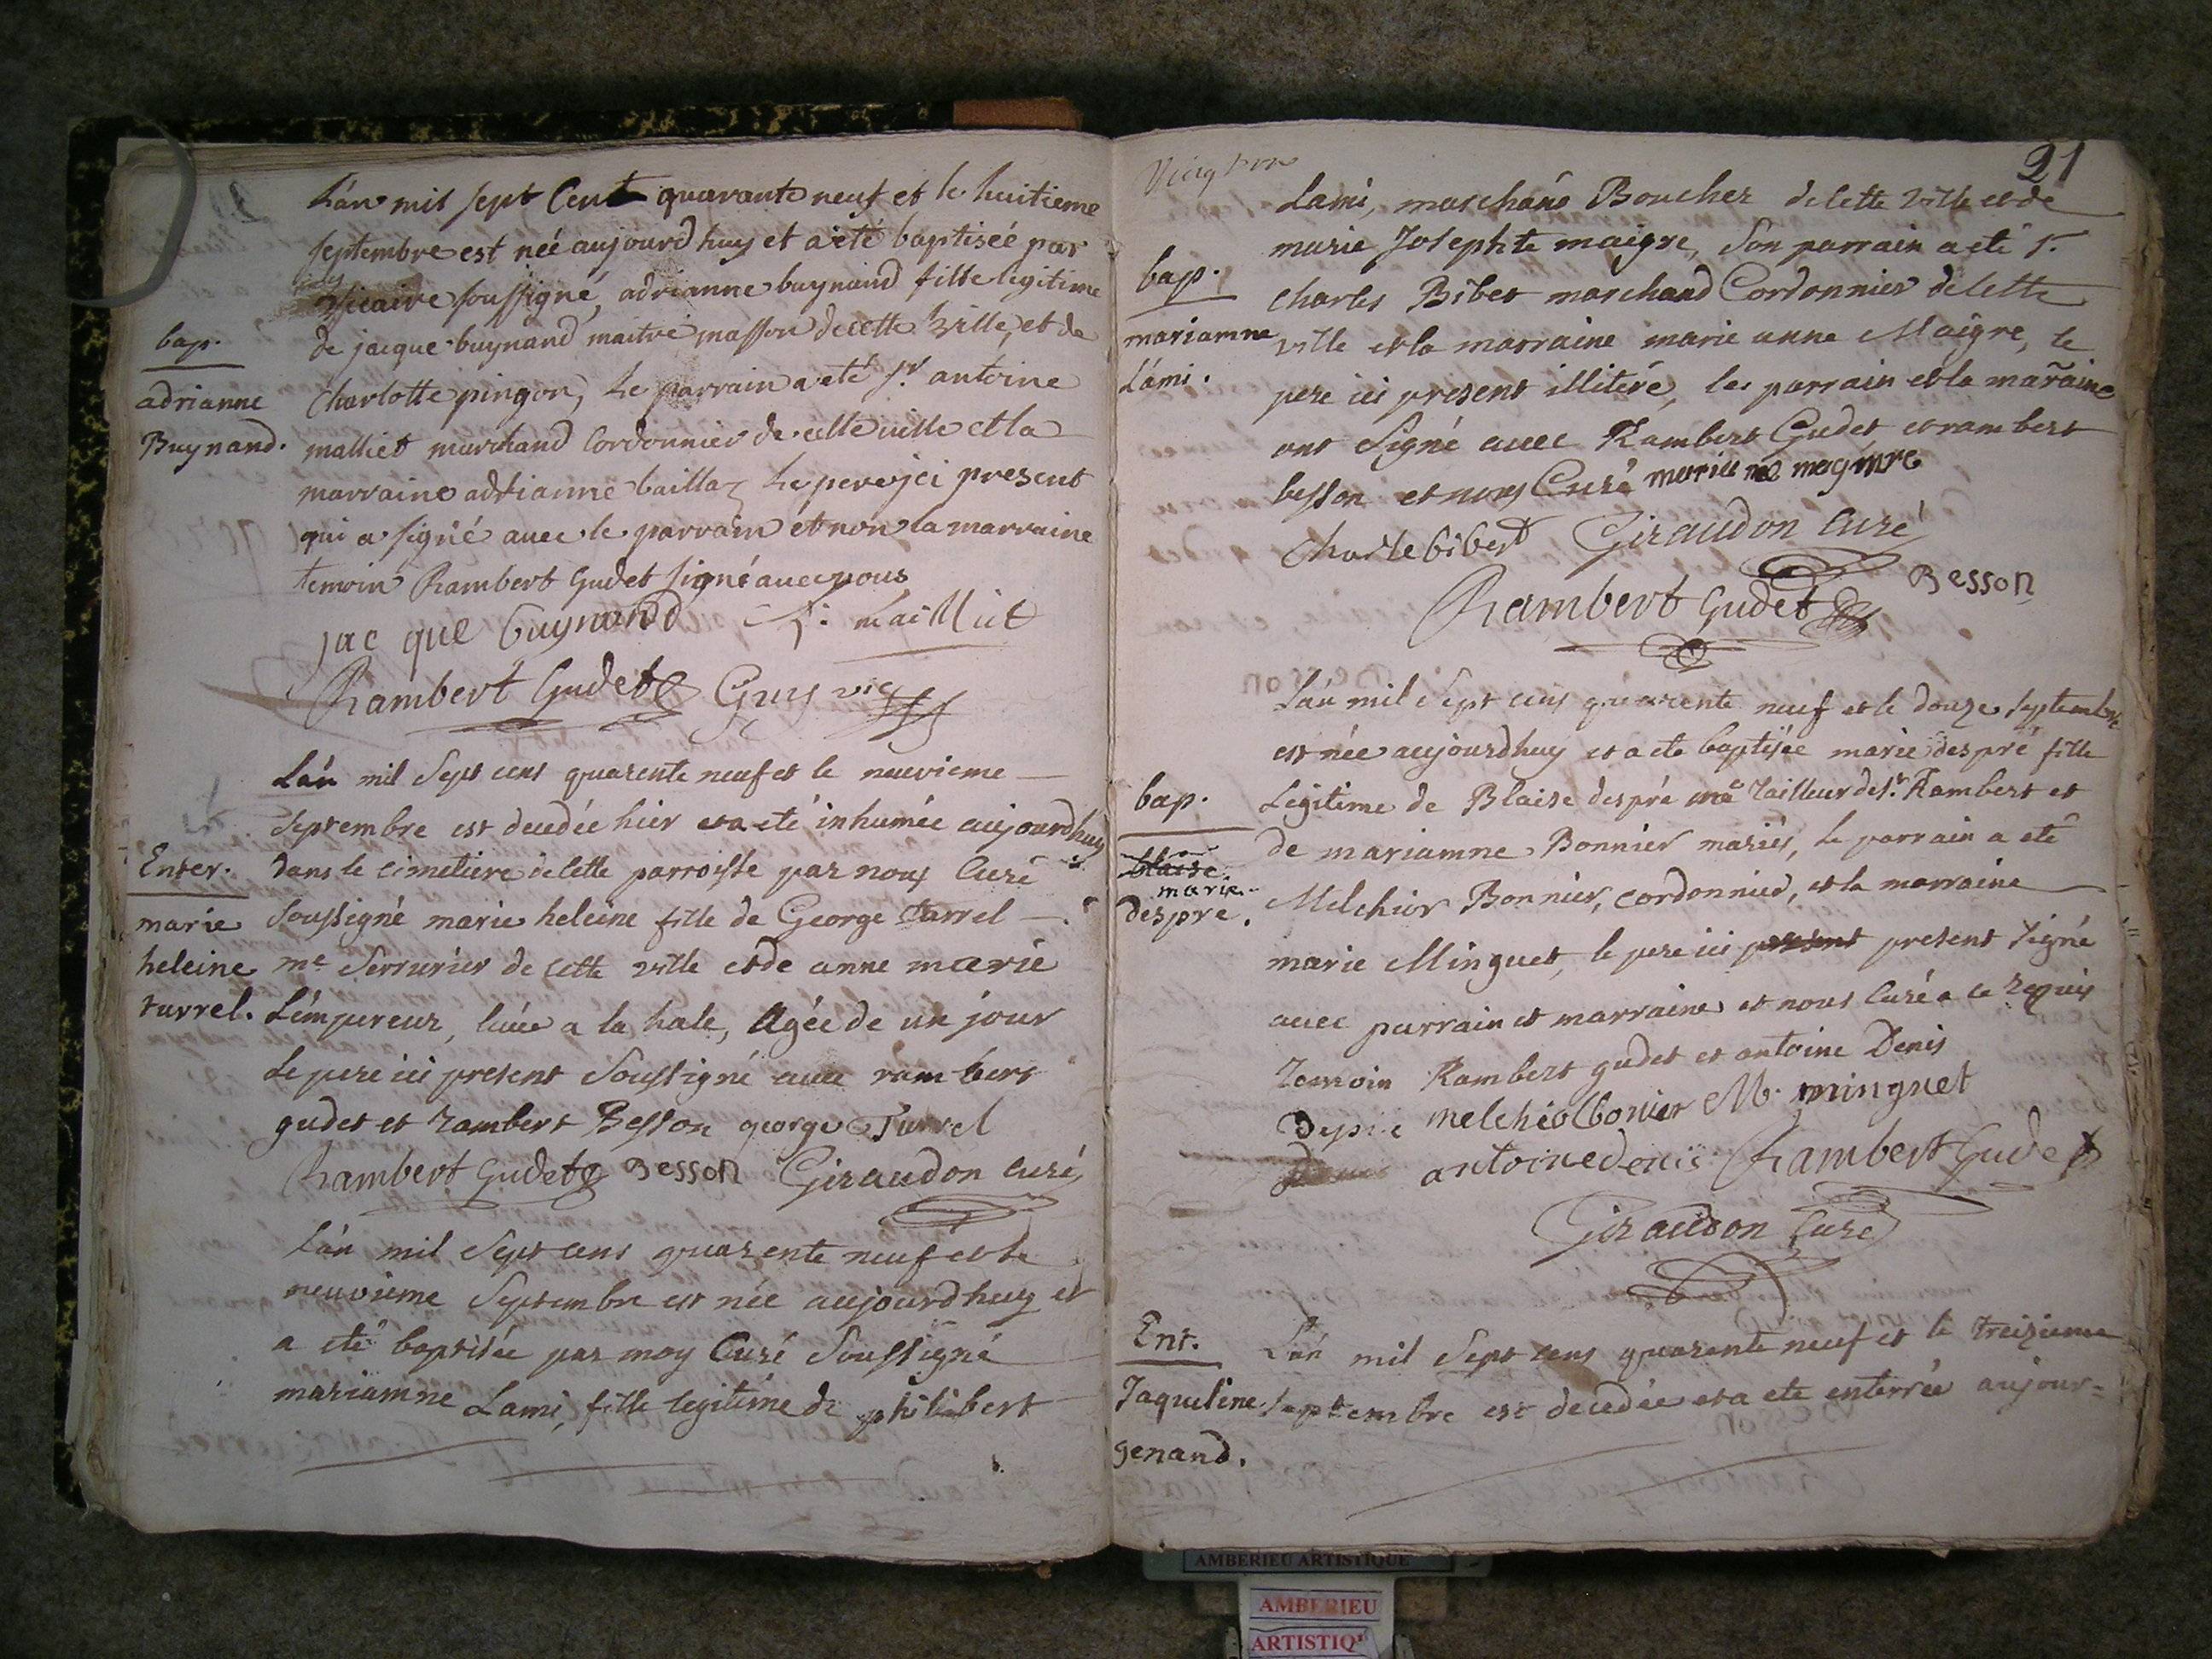 L'án mil sept Cent quarante neuf et le huitieme
septembre est née aujourd huy et a été baptiseé par
vicaire soussigné, adrianne buynand fille legitime
bap.
de jacque buynand maitre masson de cette ville, et de
adrianne
Charlotte pingon, Le parrain a eté Sr. antoine
Buynand.
malliet marchand Cordonnier de cette ville et la
marraine adrianne bailla Le pere jci present
qui a signé avec le parrain et non la marraine
temoin Rambert Gudet signé avec nous
jac que buynand
maillict
Rambert Gudet Guy vic
L'án mil Sept cens quarente neuf et le neuvieme
Septembre est decedée hier et a eté inhumée aujourdhuy
Enter.
Dans le cimetiere de cette parroisse par nous Curé
marie
Soussigné marie heleine fille de George turrel
heleine
me Serrurier de cette ville et de anne marie
turrel.
L'émpereur, a la hale, Agée de un jour
Le pere ici present Soussigné avec rambert
gudet et rambert Besson george Turrel
Rambert Gudet Besson Giraudon Curé
L'án mil Sept cens quarente neuf et le
neuvieme Septembre est née aujourdhuy et
a eté baptisée par moy Curé Soussigné
mariamne Lami, fille legitime de philibert
Vingt
21
Lami, marchand Boucher de cette ville et de
marie Josephte maigre, Son parrain a eté Sr.
bap.
charles Bibet marchand Cordonnier de cette
mariamne
ville et la marraine marie anne Maigre, le
L'ámi.
pere ici present illiteré, les parrain et la maraine
ont Signé avec Rambert Gudet et rambert
besson et nous Curé marie ne magnre
Charle bibert Giraudon Curé
Besson
Rambert Gudet
L'án mil Sept cens quarente neuf et le douze septembre
est née aujourdhuy et a eté baptisée marie despré fille
bap.
Legitime de Blaise despré me Tailleur de St. Rambert et
blaise
de mariamne Bonnier mariés, le parrain a eté
marie
despre.
Melchior Bonnier, cordonnier, et la marraine
marie Minguet, le pere ici present present signé
avec parrain et marraine et nous Curé a ce requis
Temoin Rambert gudet et antoine Denis
Depre melchiol bonier M. minguet
antoine denis Rambert Gudet
Giraudon Curé
Ent.
L'án mil Sept cens quarente neuf et le treizieme
Jaqueline
septembre est decedée et a eté enterrée aujour-
genand.
AMBERIEU ARTISTIQUE
AMBERIEU
ARTISTIQ